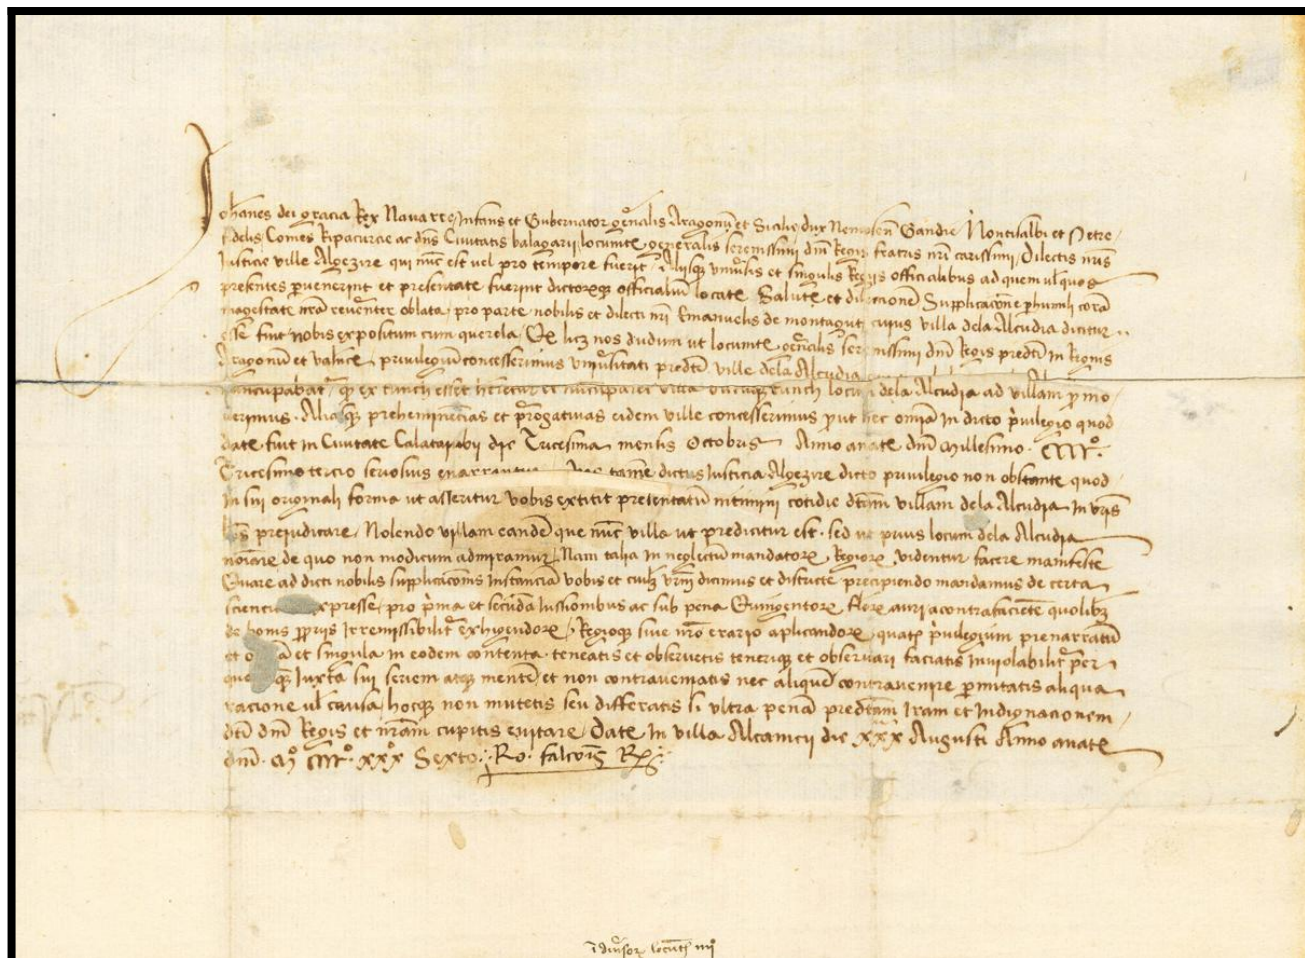 Johanes dei gracia Rex Navarre, Infans et Gubernator gen͞alis Aragonu͞ et Sicilie, dux Nemosen͞ Gandie Montisalbi et Petre
fidelis Comes Ripacurcie ac dn͞s Civitatis balagarii, locumte͞ generalis serenissimi dn͞i Regis fratris nr͞i carissimi, Dilectis nr͞is
Justicie ville Algezire qui nu͞c est vel pro tempore fuerit, Aliisq͞ univ͞sis et singulis Regiis officialibus ad quem ul͞ quos
presentes p͞venerint et presentate fuerint dictoru͞q͞ officialiu͞ locate͞. Salute͞ et dilectione͞. Supplicac͞one p͞humili cora͞
magestate nr͞a reve͞nter oblata, pro parte nobilis et dilecti nr͞i Emanuelis de montagut, cujus villa dela Alcudia dicitur
esse fuit nobis expositum cum querela, Q͞ licz nos dudum ut locumte͞ gen͞alis serenissimi dn͞i Regis predt͞i in Regnis
Aragonu͞ et valn͞cie, privilegiu͞ concesserimus univ͞sitati predt͞e ville dela Alcudia
nuncupabat͞, q͞ ex tunch esset villa tunch loci dela Alcudia ad villam p͞mo
verimus. Aliasq͞ preheminen͞cias et p͞rogativas eidem ville concesserimus p͞ut hec om͞ia in dicto p͞vilegio quod
date͞ fuit in Civitate Calatajubii die Tricesima mensis Octobris Anno a nate dn͞i Millesimo. CCCCº.
Tricesimo tercio seriosius enarrantur tame͞ dictus Justicia Algezire dicto privilegio non obstante quod
in sui originali forma ut asseritur vobis extitit presentatu͞ nitimini cotidie dt͞am villam dela Alcudia in vr͞is
prejudicare, Nolendo villam eande͞ que nu͞c villa ut predicitur est, sed ut prius locum dela Alcudia
no͞iare de quo non modicum admiramur, Nam talia in neglectu͞ mandatoru͞ Regioru͞ videntur facere manifeste
Quare ad dicti nobilis supplicac͞onis instancia͞ vobis et cuilz͞ vr͞m dicimus et districte precipiendo mandamus de certa
sciencia expresse, pro p͞ma et secu͞da Jussionibus ac sub pena Quingentoru͞ floru͞ auri, a contrafaciente͞ quolibz͞
de bonis p͞priis irremissibilit͞ exhigendoru͞, Regioq͞ sive nr͞o erario aplicandoru͞, quat͞s p͞vilegium prenarratu͞
et om͞ia et singula in eodem contenta teneatis et observetis teneriq͞ et observari faciatis inviolabilit͞ per
quosq͞ Juxta sui seriem atq͞ mente͞, et non contraveniatis nec alique͞ contravenire p͞mitatis aliqua
racione ul͞ causa, hocq͞ non mutetis seu differatis si ultra pena͞ predt͞am Iram et Indignacionem
dt͞i dn͞i Regis et nr͞am cupitis evitare, Date͞ in villa Alcanicii die xxx Augusti Anno a nate
dn͞i. Mº CCCCº xxxº Sexto. Ro. falco͞is Rx͞
i͞ div͞soru͞ locute͞n iiiiº